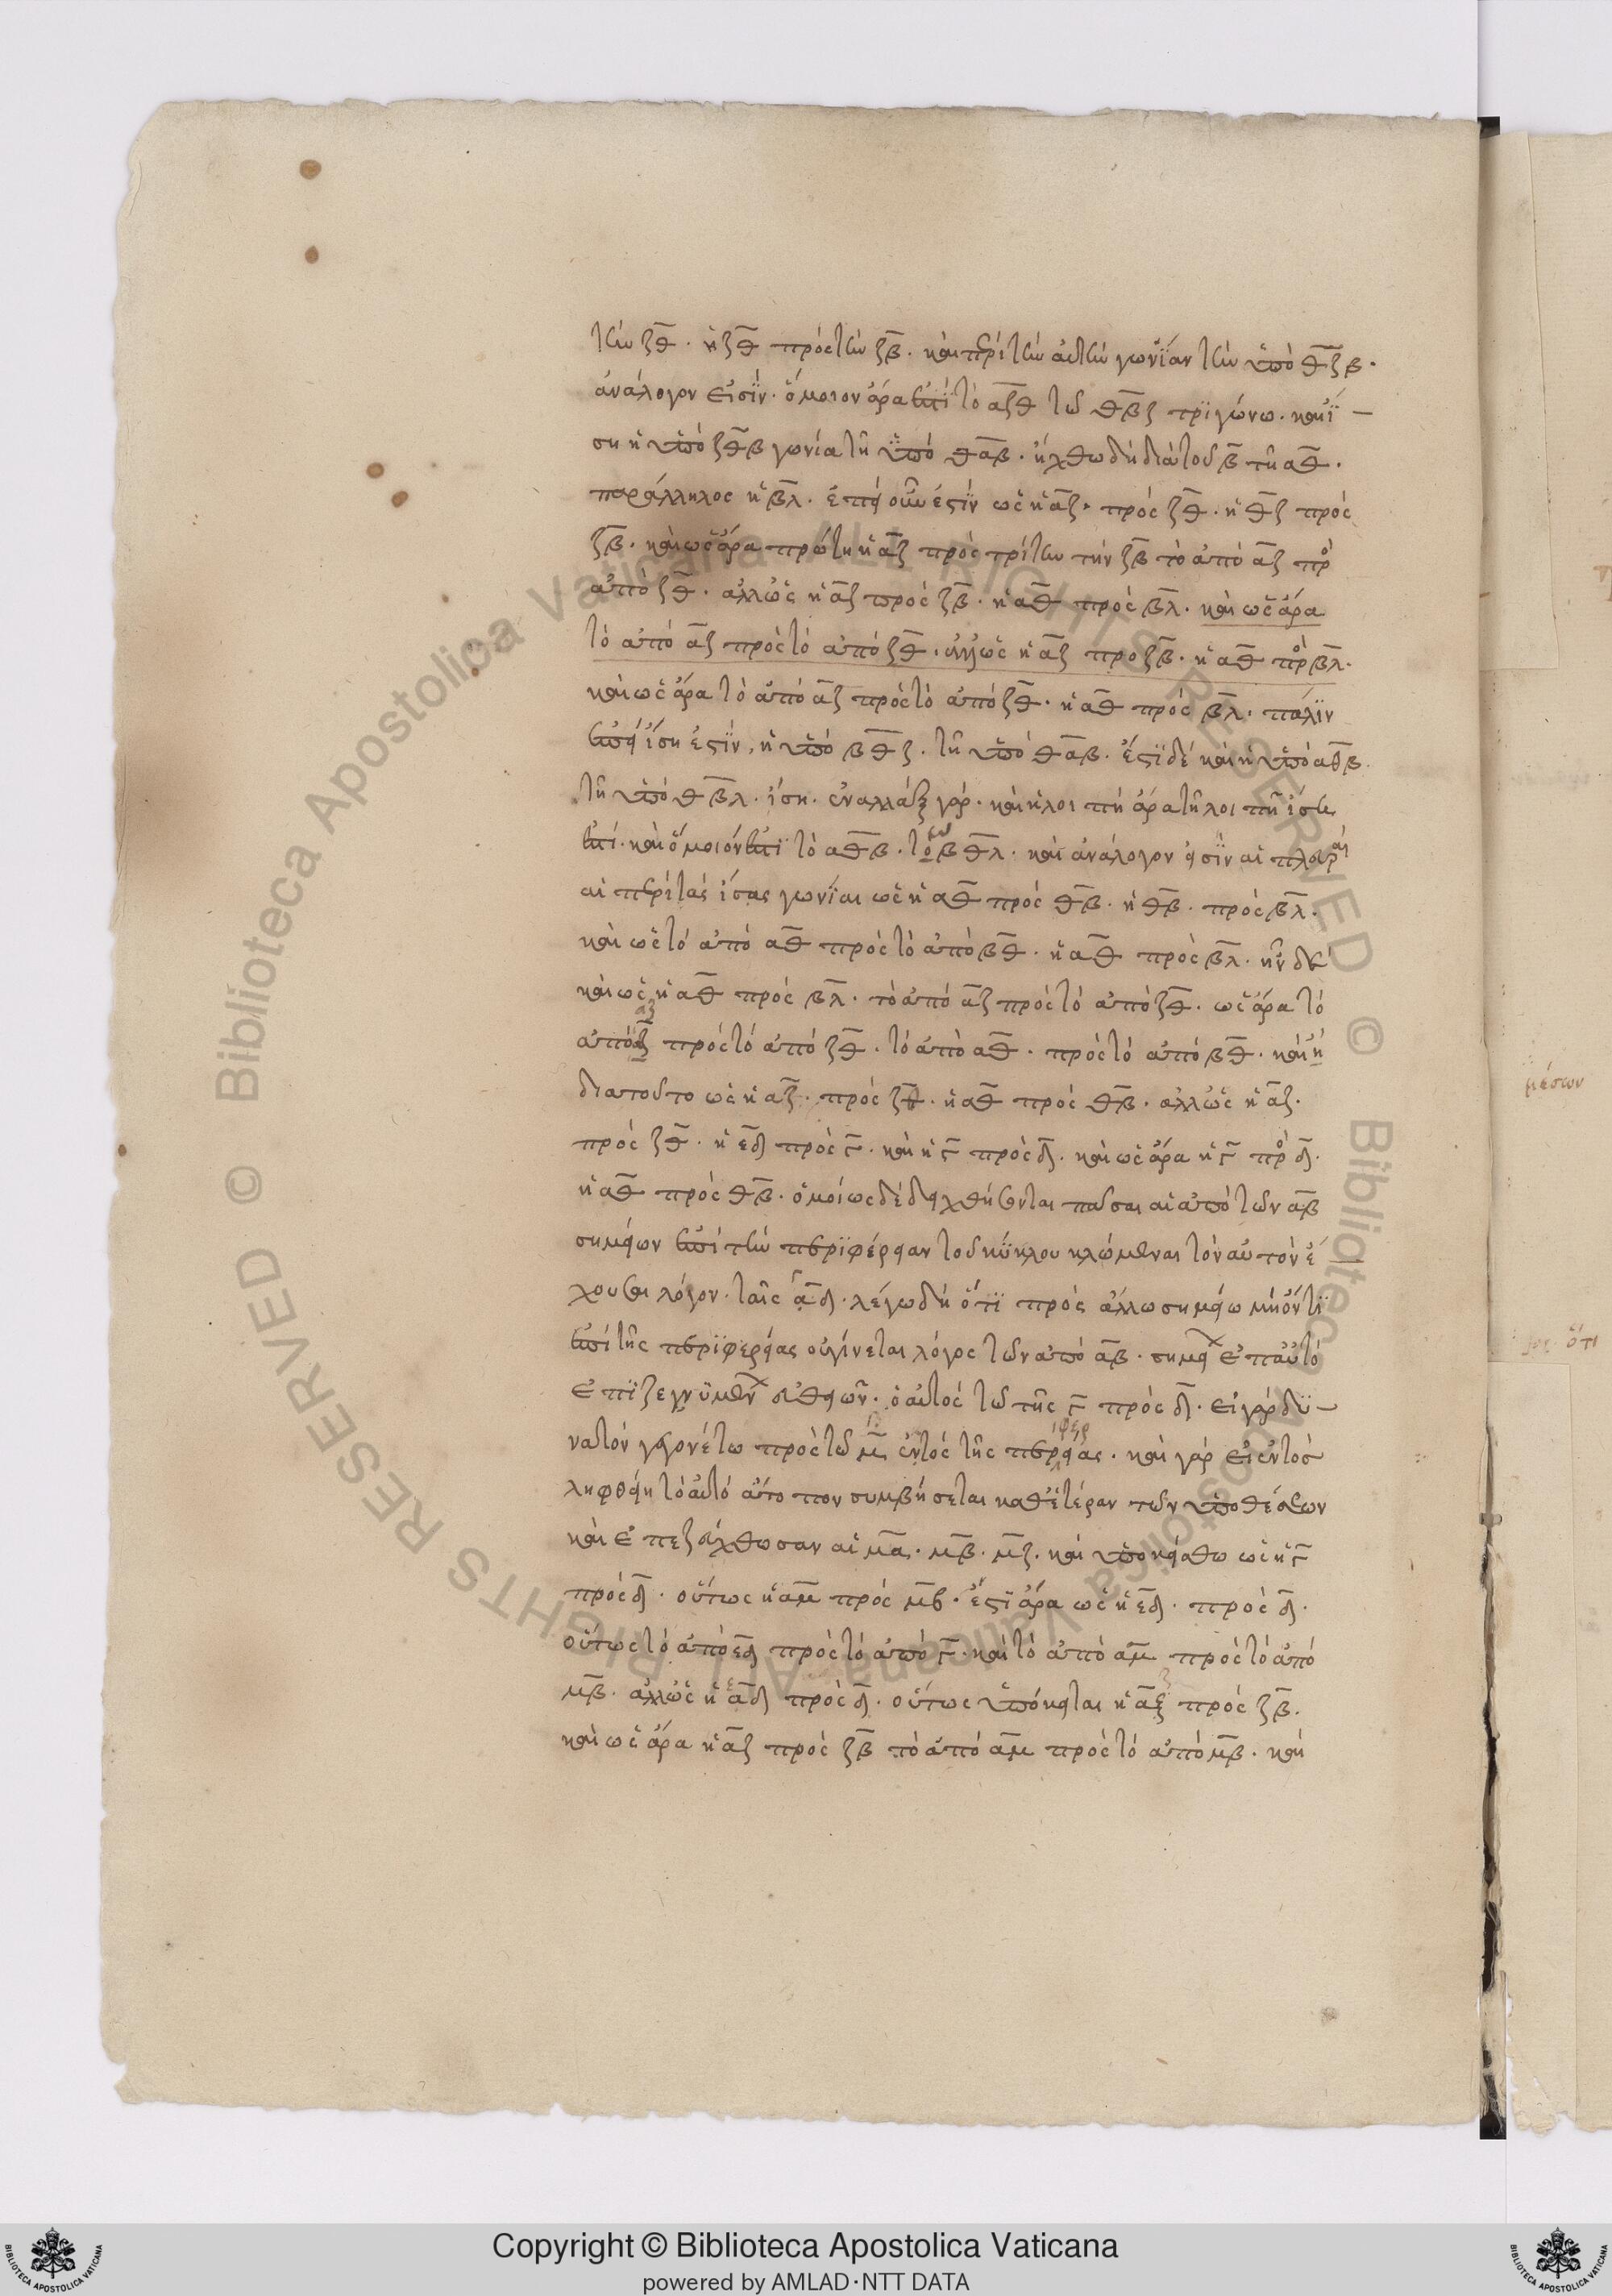 τὴν ζθ. ἡ ζθ πρὸς τὴν ζβ. καὶ περὶ τὴν αὐτὴν γωνίαν τὴν ὑπὸ θζβ.
ἀνάλογον εἰσὶν. ὅμοιον ἄρα ἐστὶ τὸ αζθ τῶ θβζ τριγώνω. καὶ ἴ
ση ἡ ὑπὸ ζθβ γωνία τῆ ὑπὸ θαβ. ἤχθω δὴ διὰ τοῦ β τῆ αθ.
παράλληλος ἡ βλ. ἐπεὶ οὖν ἐστὶν ὡς ἡ αζ. πρὸς ζθ. ἡ θζ πρὸς
ζβ. καὶ ὡς ἄρα πρώτη ἡ αζ πρὸς τρίτην τὴν ζβ τὸ ἀπὸ αζ πρὸς
ἀπὸ ζθ. ἀλλ' ὡς ἡ αζ πρὸς ζβ. ἡ αθ πρὸς βλ. καὶ ὡς ἄρα
τὸ ἀπὸ αζ πρὸς τὸ ἀπὸ ζθ. ἀλλ' ὡς ἡ αζ προ ζβ. ἡ αθ πρὸς βλ.
καὶ ὡς ἄρα τὸ ἀπὸ αζ πρὸς τὸ ἀπὸ ζθ. ἡ αθ πρὸς βλ. πάλιν
ἐπεὶ ἴση ἐστὶν, ἡ ὑπὸ βθζ. τῆ ὑπὸ θαβ. ἔστι δὲ καὶ ἡ ὑπὸ αθβ.
τῆ ὑπὸ θβλ. ἴση. ἐναλλὰξ γάρ. καὶ ἡ λοιπὴ ἄρα τῆ λοιπῆ ἴση
ἐστί. καὶ ὅμοιόν ἐστι τὸ αθβ. τὸ βθλ. καὶ ἀνάλογον εἰσὶν αἱ πλευραὶ
αἱ περὶ τὰς ἴσας γωνίαι ὡς ἡ αθ πρὸς θβ. ἡ θβ. πρὸς βλ.
καὶ ὡς τὸ ἀπὸ αθ πρὸς τὸ ἀπὸ βθ. ἡ αθ πρὸς βλ. ἦν δὲ
καὶ ὡς ἡ αθ πρὸς βλ. τὸ ἀπὸ αζ πρὸς τὸ ἀπὸ ζθ. ὡς ἄρα τὸ
ἀπὸ αζ πρὸς τὸ ἀπὸ ζθ. τὸ ἀπὸ αθ. πρὸς τὸ ἀπὸ βθ. καὶ
διατοῦτο ὡς ἡ αζ. πρὸς ζθ. ἡ αθ πρὸς θβ. ἀλλ' ὡς ἡ αζ.
πρὸς ζθ. ἡ εδ πρὸς γ. καὶ ἡ γ πρὸς δ. καὶ ὡς ἄρα ἡ γ πρὸς δ.
ἡ αθ πρὸς θβ. ὁμοίως δὲ δειχθήσονται πᾶσαι αἱ ἀπὸ τῶν αβ
σημείων ἐπὶ τὴν περιφέρειαν τοῦ κύκλου κλώμεναι τὸν αὐτὸν ἔ
χουσαι λόγον. ταῖς γδ. λέγω δὴ ὅτι πρὸς ἄλλω σημείω μὴ ὄντι
ἐπὶ τῆς περιφερείας οὐ γίνεται λόγος τῶν ἀπὸ αβ. σημείων ἐπ' αὐτὸ
ἐπιζευγνυμένων εὐθειῶν. ὁ αὐτὸς τῶ τῆς γ πρὸς δ. εἰ γὰρ δυ
νατὸν γεγονέτω πρὸς τῶ μ ἐντὸς τῆς περιφερείας. καὶ γὰρ εἰ ἐντὸς
ληφθείη τὸ αὐτὸ ἄτοπον συμβήσεται καθ' ἑτέραν τῶν ὑποθέσεων
καὶ ἐπεζεύχθωσαν αἱ μα. μβ. μζ. καὶ ὑποκείσθω ὡς ἡ γ
πρὸς δ. οὕτως ἡ αμ πρὸς μβ. ἔστι ἄρα ὡς ἡ εδ. πρὸς δ.
οὕτως τὸ ἀπὸ εδ πρὸς τὸ ἀπὸ γ. καὶ τὸ ἀπὸ αμ πρὸς τὸ ἀπὸ
μβ. ἀλλ' ὡς ἡ εδ πρὸς δ. οὕτως ὑπόκειται ἡ αζ πρὸς ζβ.
καὶ ὡς ἄρα ἡ αζ πρὸς ζβ τὸ ἀπὸ αμ πρὸς τὸ ἀπὸ μβ. καὶ
μέσων
ὅτι
© Biblioteca Apostolica Vaticana ALL RIGHTS RESERVED
© Biblioteca Apostolica Vaticana ALL RIGHTS RESERVED
Copyright © Biblioteca Apostolica Vaticana
powered by AMLAD·NTT DATA
BIBLIOTECA APOSTOLICA VATICANA
BIBLIOTECA APOSTOLICA VATICANA